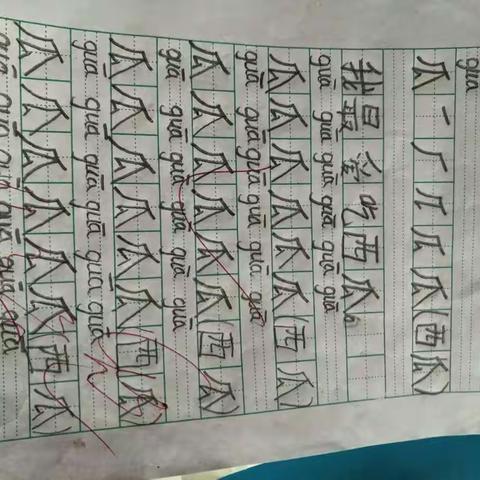 guā
瓜一厂丌瓜瓜(西瓜)
guā guā guā guā guā guā
我最爱吃西瓜。
guā guā guā guā guā guā
瓜瓜瓜瓜瓜瓜(西瓜)
guā guā guā guā guā guā
瓜瓜瓜瓜瓜瓜(西瓜)
guā guā guā guā guā guā
瓜瓜瓜瓜瓜瓜(西瓜)
guā guā guā guā guā guā
瓜瓜瓜瓜瓜瓜(西瓜)